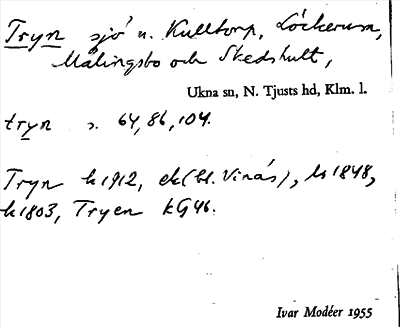 Tryn sjö n. Kulltorp, Löckerum,
Målingsbo och Skedshult,
Ukna sn, N. Tjusts hd, Klm. l.
tryn s. 64, 86, 104.
Tryn k 1912, ek (bl. Vinäs), ls 1848,
k 1803, Tryen kG46.
Ivar Modéer 1955